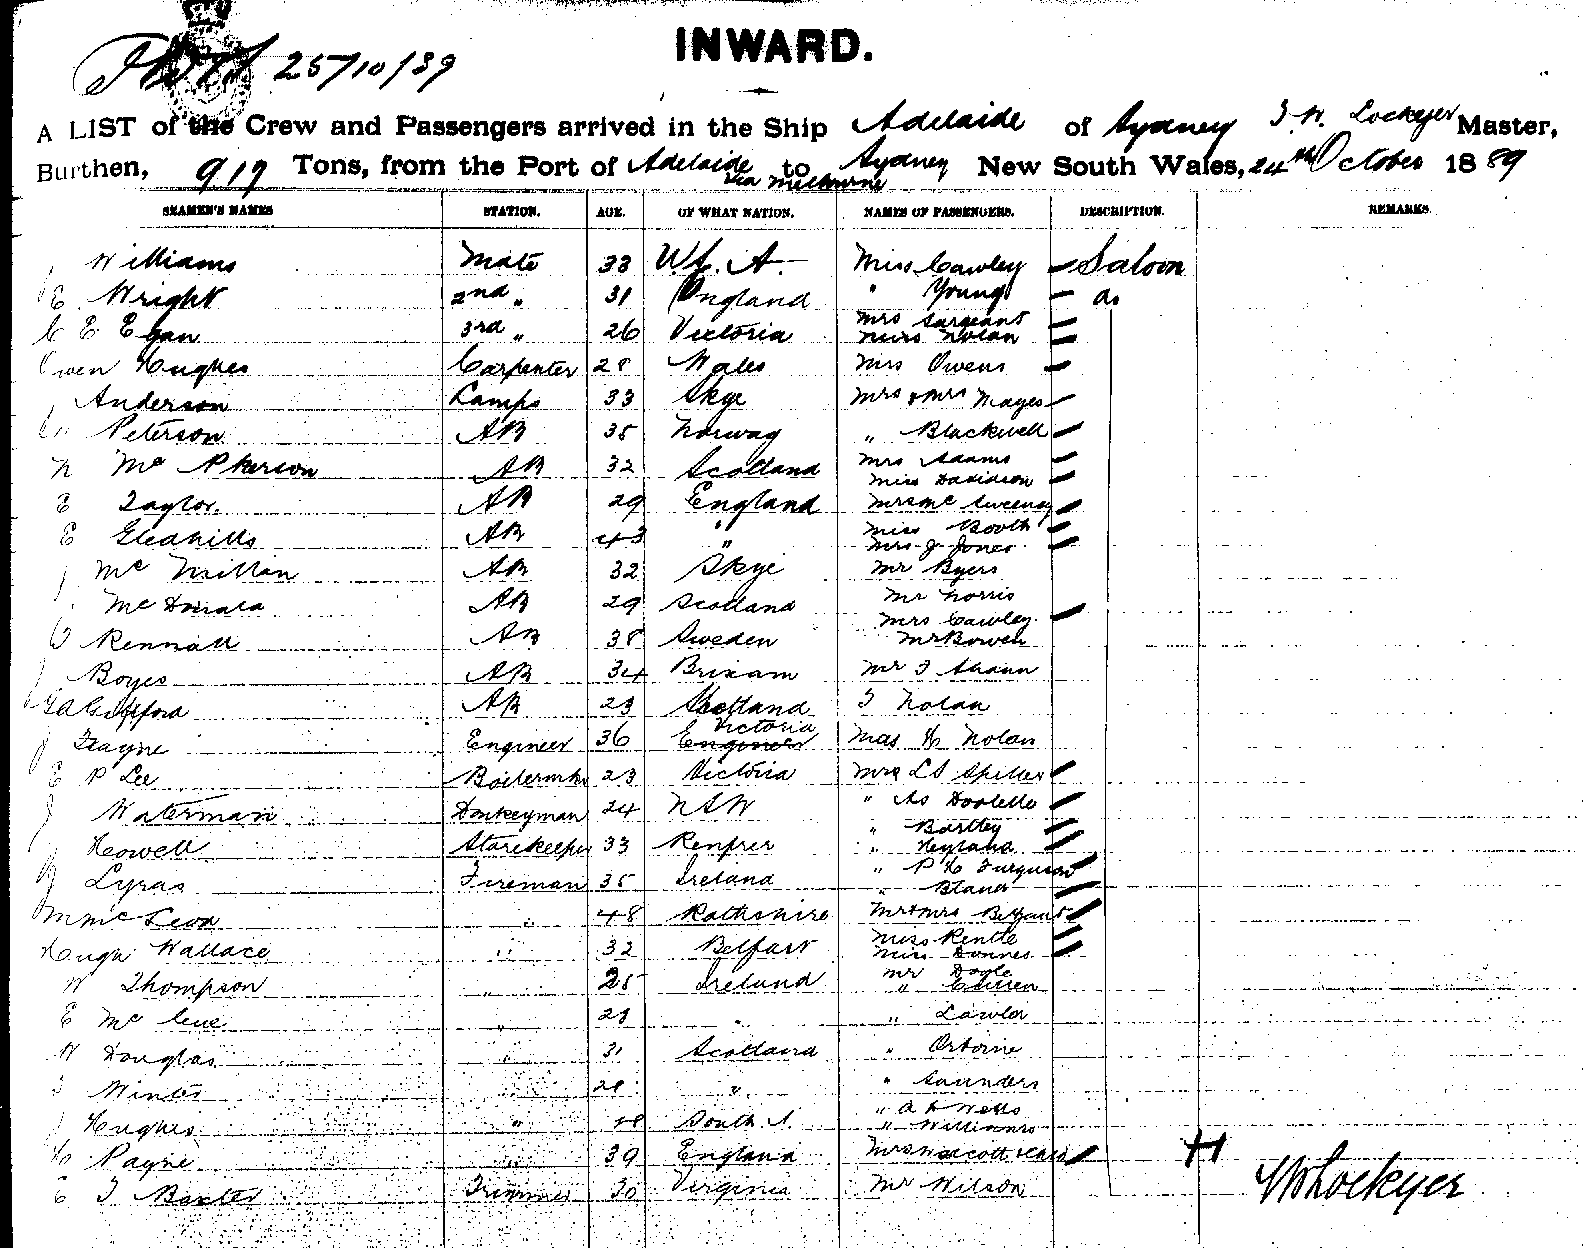 INWARD.
25/10/89
A LIST of the Crew and Passengers arrived in the Ship Adelaide of Sydney J. W. Lockyer Master,
Burthen, 919 Tons, from the Port of Adelaide via Melbourne to Sydney New South Wales, 24th October 1889
SEAMEN'S NAMES STATION. AGE. OF WHAT NATION. NAMES OF PASSENGERS. DESCRIPTION. REMARKS
Williams Mate 33 W. A. Miss Cawley Saloon
E Wright 2nd " 31 England " Young do
C E Egan 3rd " 26 Victoria Mrs Sargeant
Miss Nolan
Owen Hughes Carpenter 28 Wales Mrs Owens
Anderson Lamps 33 Skye Mrs & Mrs Mayes
Peterson AB 35 Norway " Blackwell
N McPherson AB 32 Scotland Mrs Adams
Miss Davidson
E Taylor AB 29 England Mrs Mc Sweeney
E AB 43 " Miss Booth
Mrs J Jones
McMillan AB 32 Skye Mr Byers
McDonald AB 29 Scotland Mr Norris
Mrs Cawley
Rennall AB 38 Sweden Mr Bowen
Boyes AB 34 Brixam Mr J Shann
AB 23 Shetland J Nolan
Engineer 36 Victoria Mas H Nolan
E P Lee 23 Victoria Mrs LS Spiller
Waterman Donkeyman 24 NSW "
" Bartley
Howell Storekeeper 33 Renfrer " Heyland
" P H Furguson
Lyras Fireman 35 Ireland " Bland
M McLeod " 48 Rothshire Mr & Mrs
Hugh Wallace " 32 Belfast Miss Rentle
Miss
W Thompson " 25 Ireland Mr Doyle
"
E McCue " 23 " " Lawlor
W Douglas " 31 Scotland " Osborne
J Winter 28 " " Saunders
Hughes " 48 South A. " A H Wells
" Williams
Payne " 39 England Mrs
E J Baxter Trimmer 30 Virginia Mr Wilson
J W Lockyer